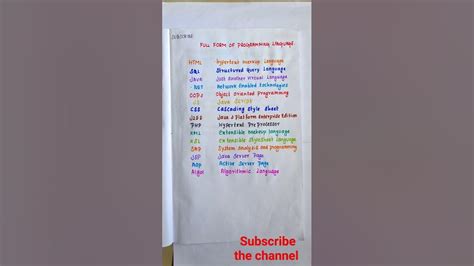 SUBSCRIBE
FULL FORM OF PROGRAMMING LANGUAGE
HTML Hypertext markup Language
SQL Structured Query Language
JAVA Just Another Virtual Language
.NET Network Enabled Technologies
OOPS Object Oriented Programming
JS Java Script
CSS Cascading Style Sheet
J2EE Java 2 Platform Enterprise Edition
PHP Hypertext Pre Processor
XML Extensible Markup Language
XSL Extensible Stylesheet Language
SAP System Analysis and programming
JSP Java Server Page
ASP Active Server Page
Algol Algorithmic Language
Subscribe
the channel